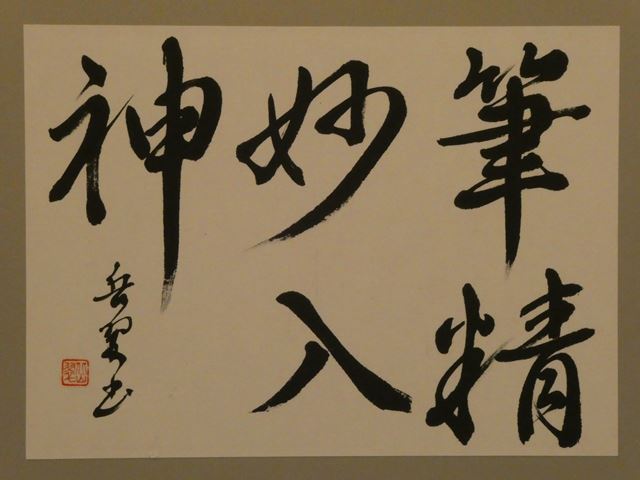 筆精
妙入
神
岳翠書